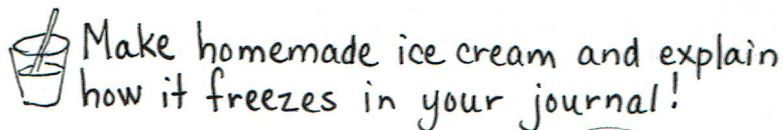 Make homemade ice cream and explain
how it freezes in your journal!